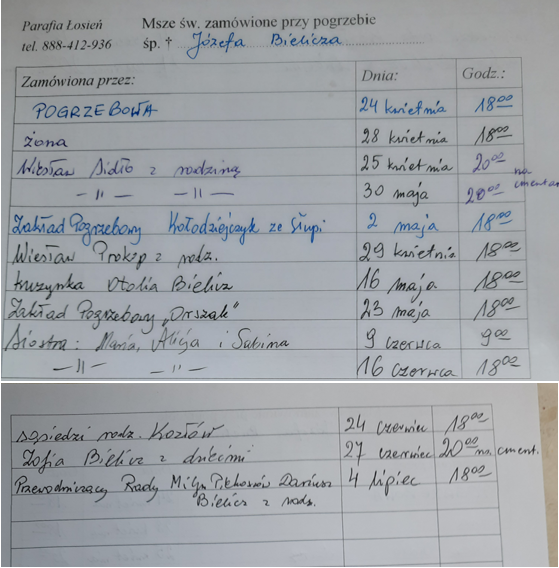 Parafia Łosień Msze św. zamówione przy pogrzebie
tel. 888-412-936 śp. † Józefa Bielicza
Zamówiona przez: Dnia: Godz.:
POGRZEBOWA 24 kwietnia 18⁰⁰
żona 28 kwietnia 18⁰⁰
Sidło z rodziną 25 kwietnia 20⁰⁰ na
— 11 — — 11 — 30 maja 20⁰⁰ cmentarz
Zakład Pogrzebowy Kołodziejczyk ze Słupi 2 maja 18⁰⁰
Wiesław Prokop z rodz. 29 kwietnia 18⁰⁰
kuzynka Otolia Bielicz 16 maja 18⁰⁰
Zakład Pogrzebowy „Orszak" 23 maja 18⁰⁰
Siostra: Maria, Alicja i Sabina 9 czerwca 9⁰⁰
— 11 — — 11 — 16 czerwca 18⁰⁰
sąsiedzi rodz. Kozłów 24 czerwiec 18⁰⁰
Zofia Bielicz z dziećmi 27 czerwiec 20⁰⁰ na cment.
Przewodniczący Rady Dariusz 4 lipiec 18⁰⁰
Bielicz z rodz.